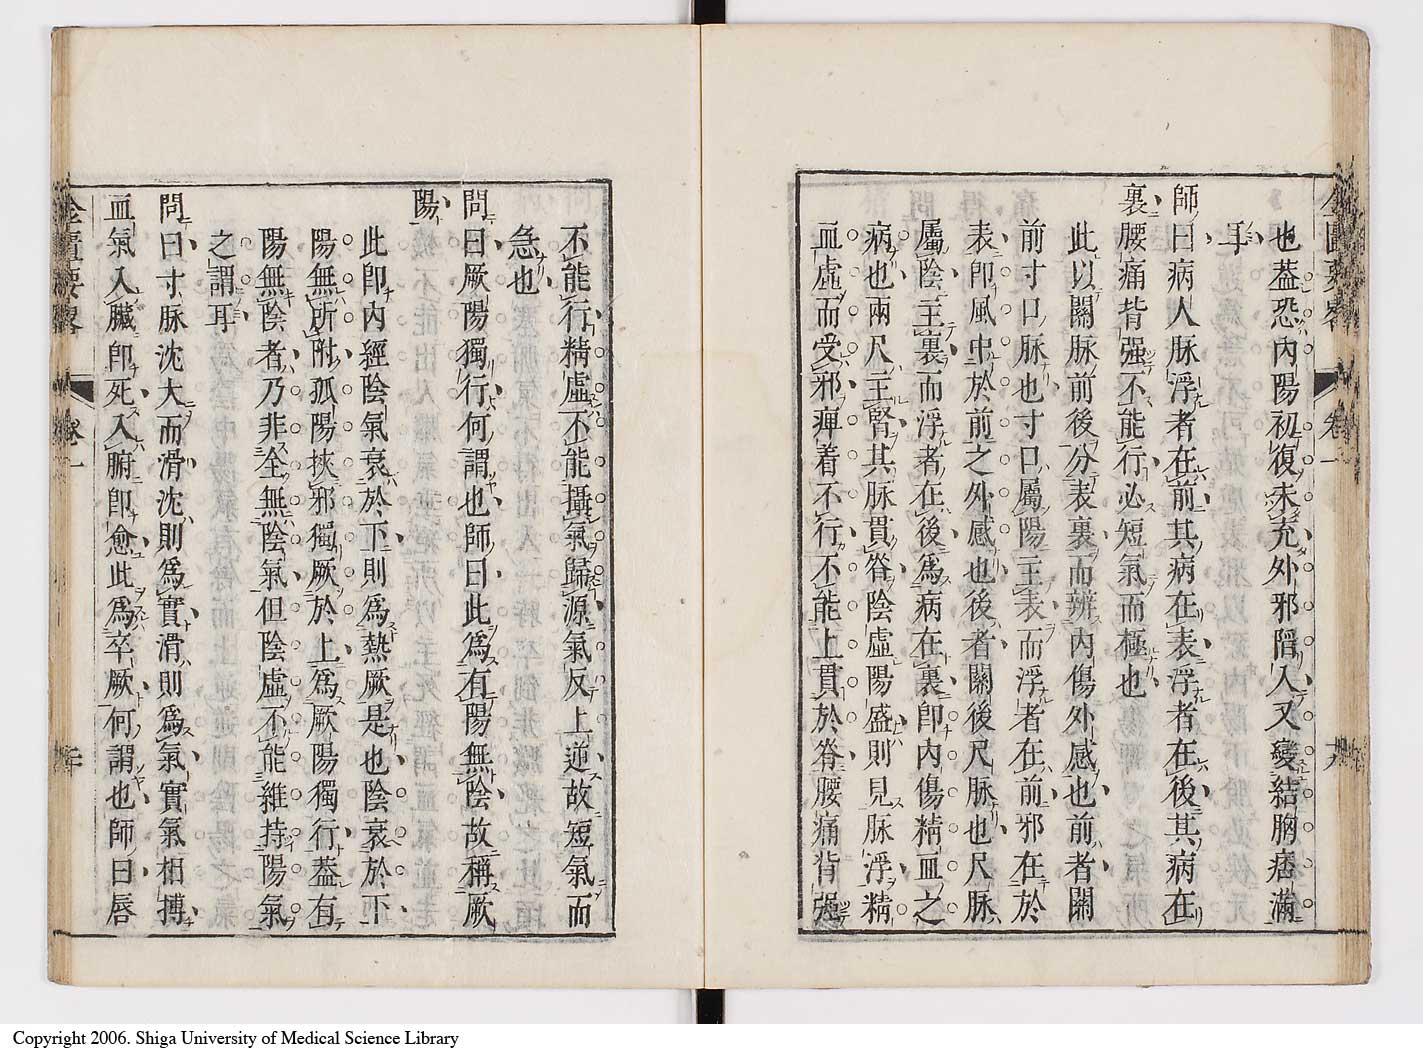 也蓋恐內陽初復未充外邪陷入又變結胸痞滿
耳
師曰病人脉浮者在前其病在表浮者在後其病在
裏腰痛背强不能行必短氣而極也
此以關脉前後分表裏而辨內傷外感也前者關
前寸口脉也寸口屬陽主表而浮者在前邪在於
表卽風中於前之外感也後者關後尺脉也尺脉
屬陰主裏而浮者在後爲病在裏卽內傷精血之
病也兩尺主腎其脉貫脊陰虛陽盛則見脉浮精
血虛而受邪痺着不行不能上貫於脊腰痛背强
金匱要略
卷一
十九
不能行精虛不能攝氣歸源氣反上逆故短氣而
急也
問曰厥陽獨行何謂也師曰此爲有陽無陰故稱厥
陽
此卽內經陰氣衰於下則爲熱厥是也陰衰於下
陽無所附孤陽挾邪獨厥於上爲厥陽獨行蓋有
陽無陰者乃非全無陰氣但陰虛不能維持陽氣
之謂耳
問曰寸脉沈大而滑沈則爲實滑則爲氣實氣相摶
血氣入臟卽死入腑卽愈此爲卒厥何謂也師曰唇
金匱要略
卷一
二十
Copyright 2006. Shiga University of Medical Science Library